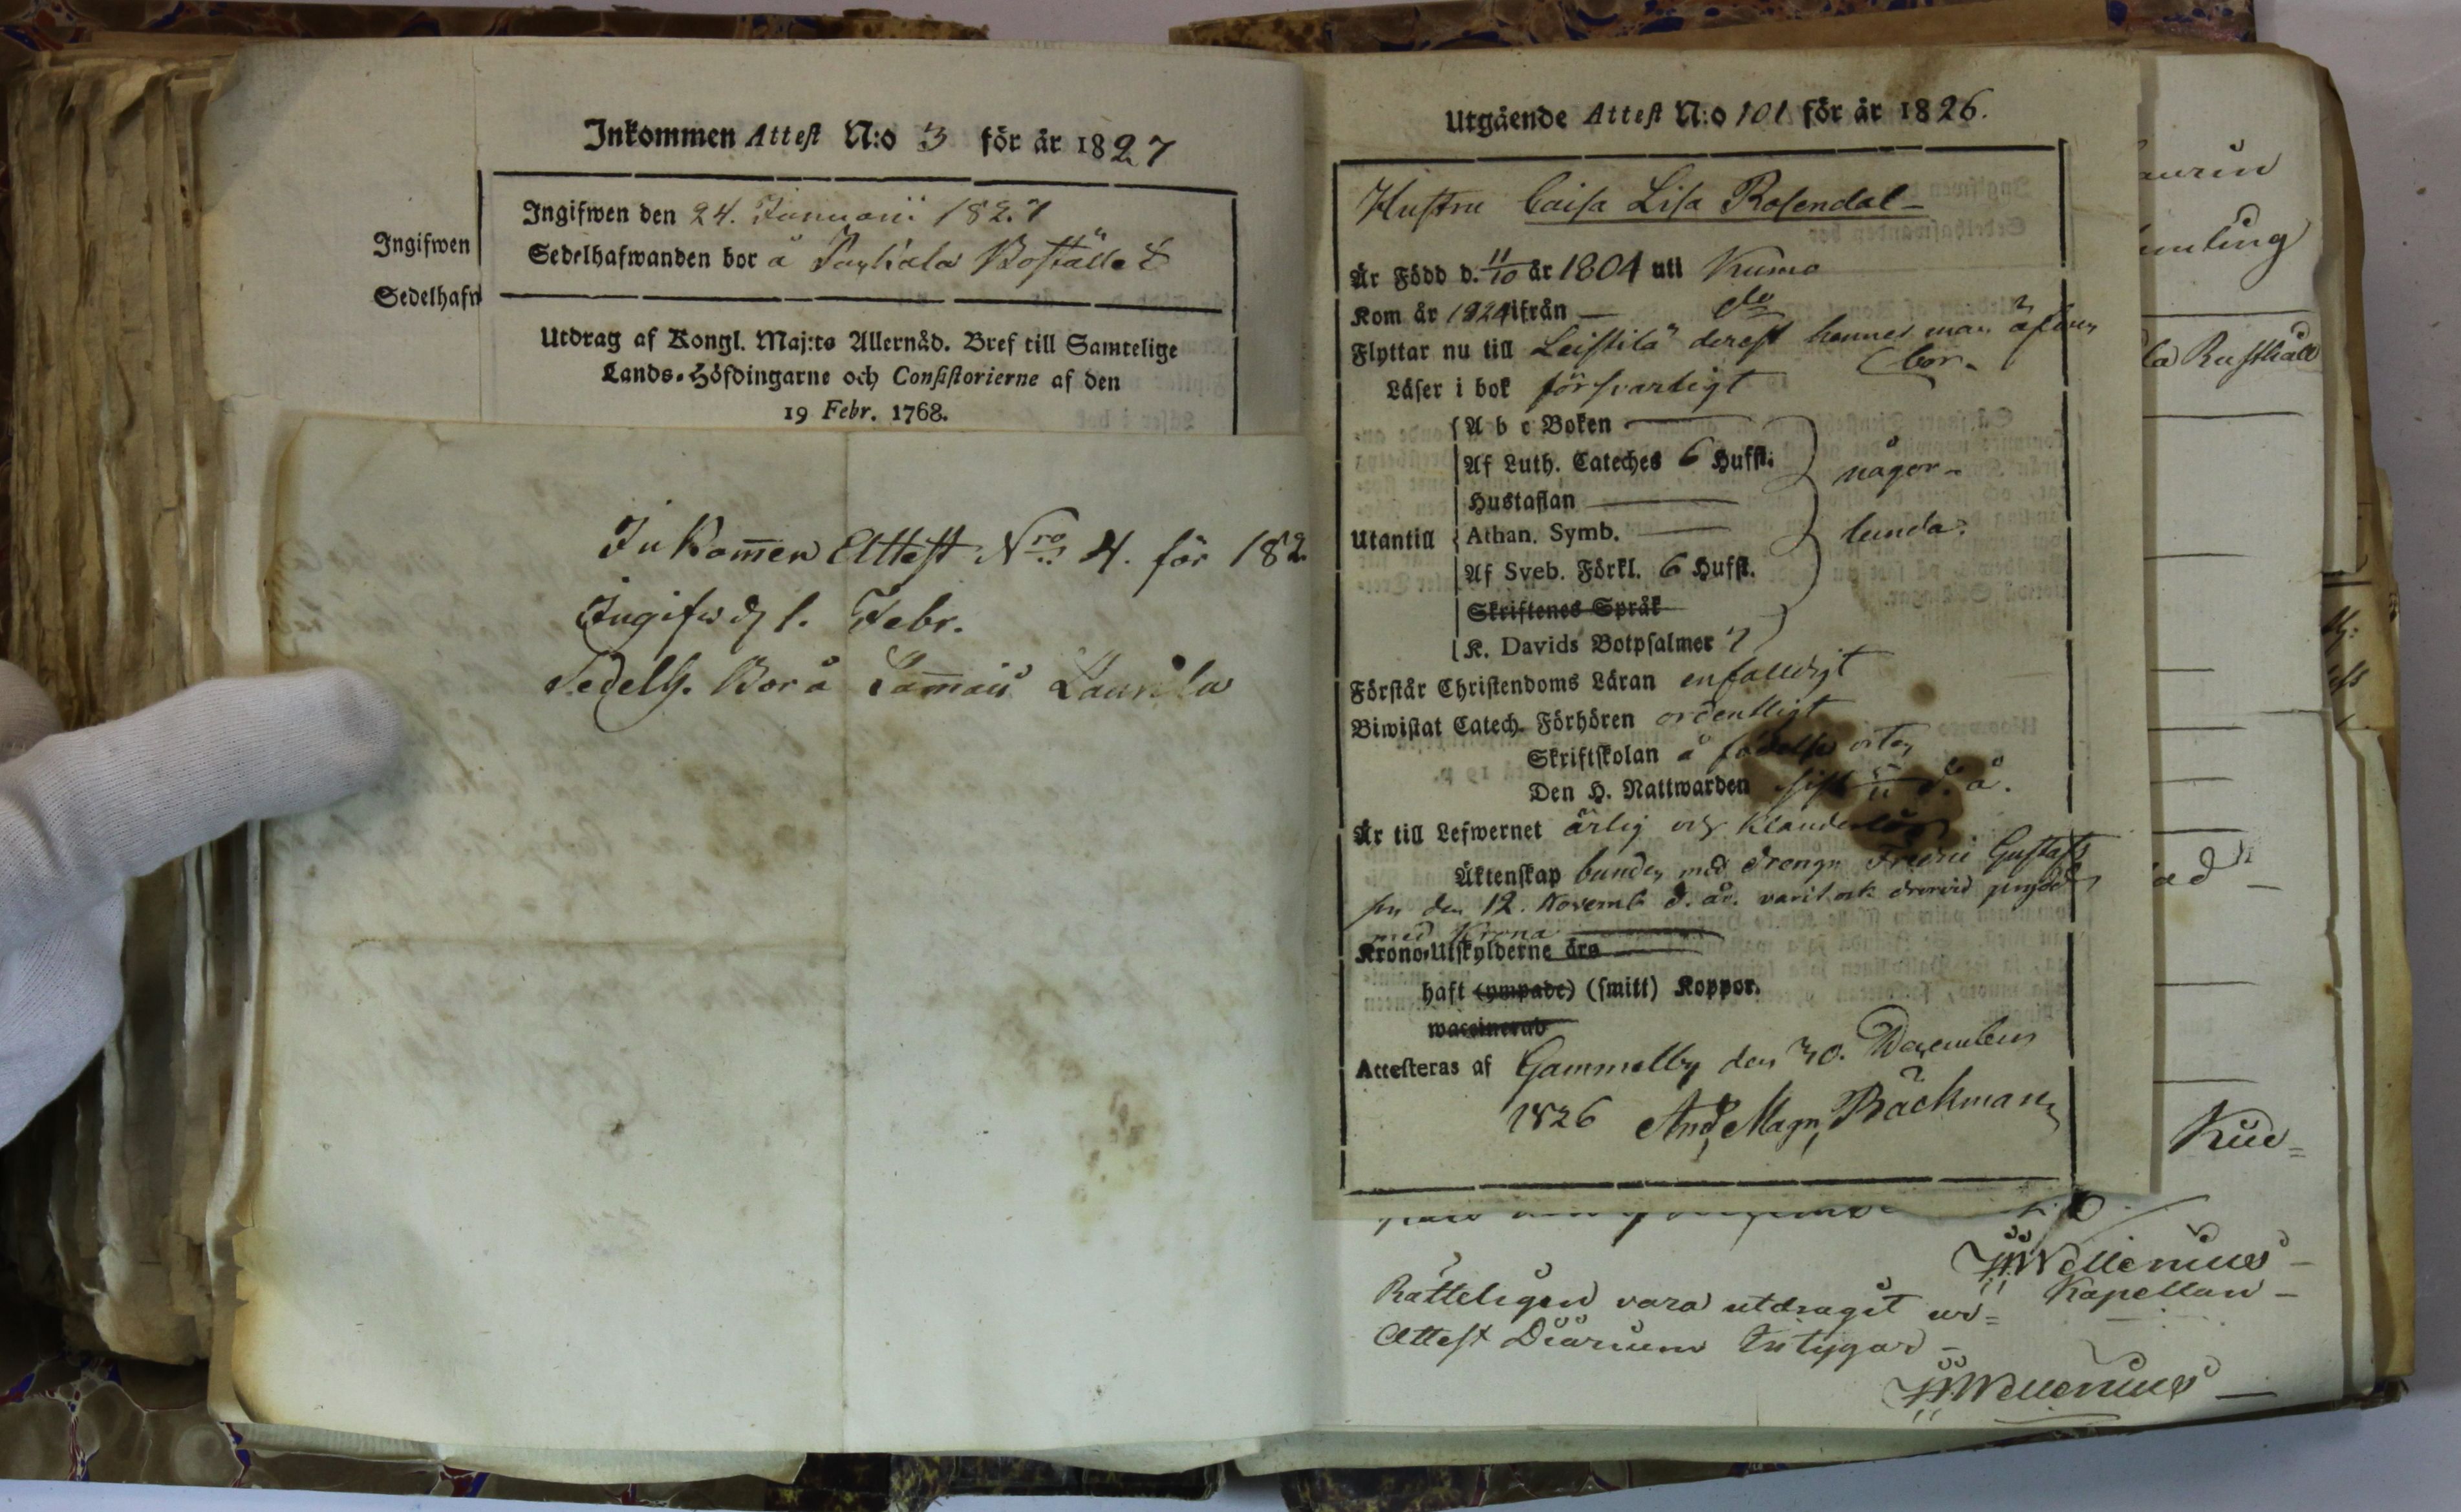 Inkommen Attest N:o 3 för år 1827
Ingifwen den 24. Januarii 1827
Sedelhafwanden bor å Boställe
Utdrag af Kongl. Maj:ts Allernåd. Bref till Samtelige
Lands-Höfdingarne och Consistorierne af den
19 Febr. 1768.
Ingifwen
Sedelhafw
Inkom̅en Attest Nro 4. för 182
Ingifw d 1. Febr.
Sedelh. Bor å Lam̅ais Laurila
Utgående Attest N:o 101 för år 1826.
Hustru Caisa Lisa Rosendal
Är Född d. 11/10 år 1804 uti Kumo
Kom år 1824 ifrån — do
Flyttar nu till Leistilä derest hennes man äfven
bor.
Läser i bok försvarligt
A b c Boken —
Af Luth. Cateches 6 Hufst.
någor-
Hustaflan —
Utantill Athan. Symb. —
lunda.
Af Sveb. Förkl. 6 Hufst.
Skriftenes Språk
K. Davids Botpsalmer 7
Förstår Christendoms Läran enfalldigt
Biwistat Catech. Förhören ordentligt
Skriftskolan å födelse orten
Den H. Nattwarden sist d. å.
Är till Lefwernet ärlig och klanderlös
Äktenskap bunden med drengn Gustafs
son den 12. Novemb d. år. varit ock dervid prydd
med Krona
Krono-Utskylderne äro
haft (ympade) (smitt) Koppor.
waccinerad
Attesteras af Gammelby den 30. December
1826 And. Magn. Bäckman
JWellenius
Kapellan
Rätteligen vara utdragit ur
Attest Diarium Intygar
JWellenius
la Rusthåll
Kue=